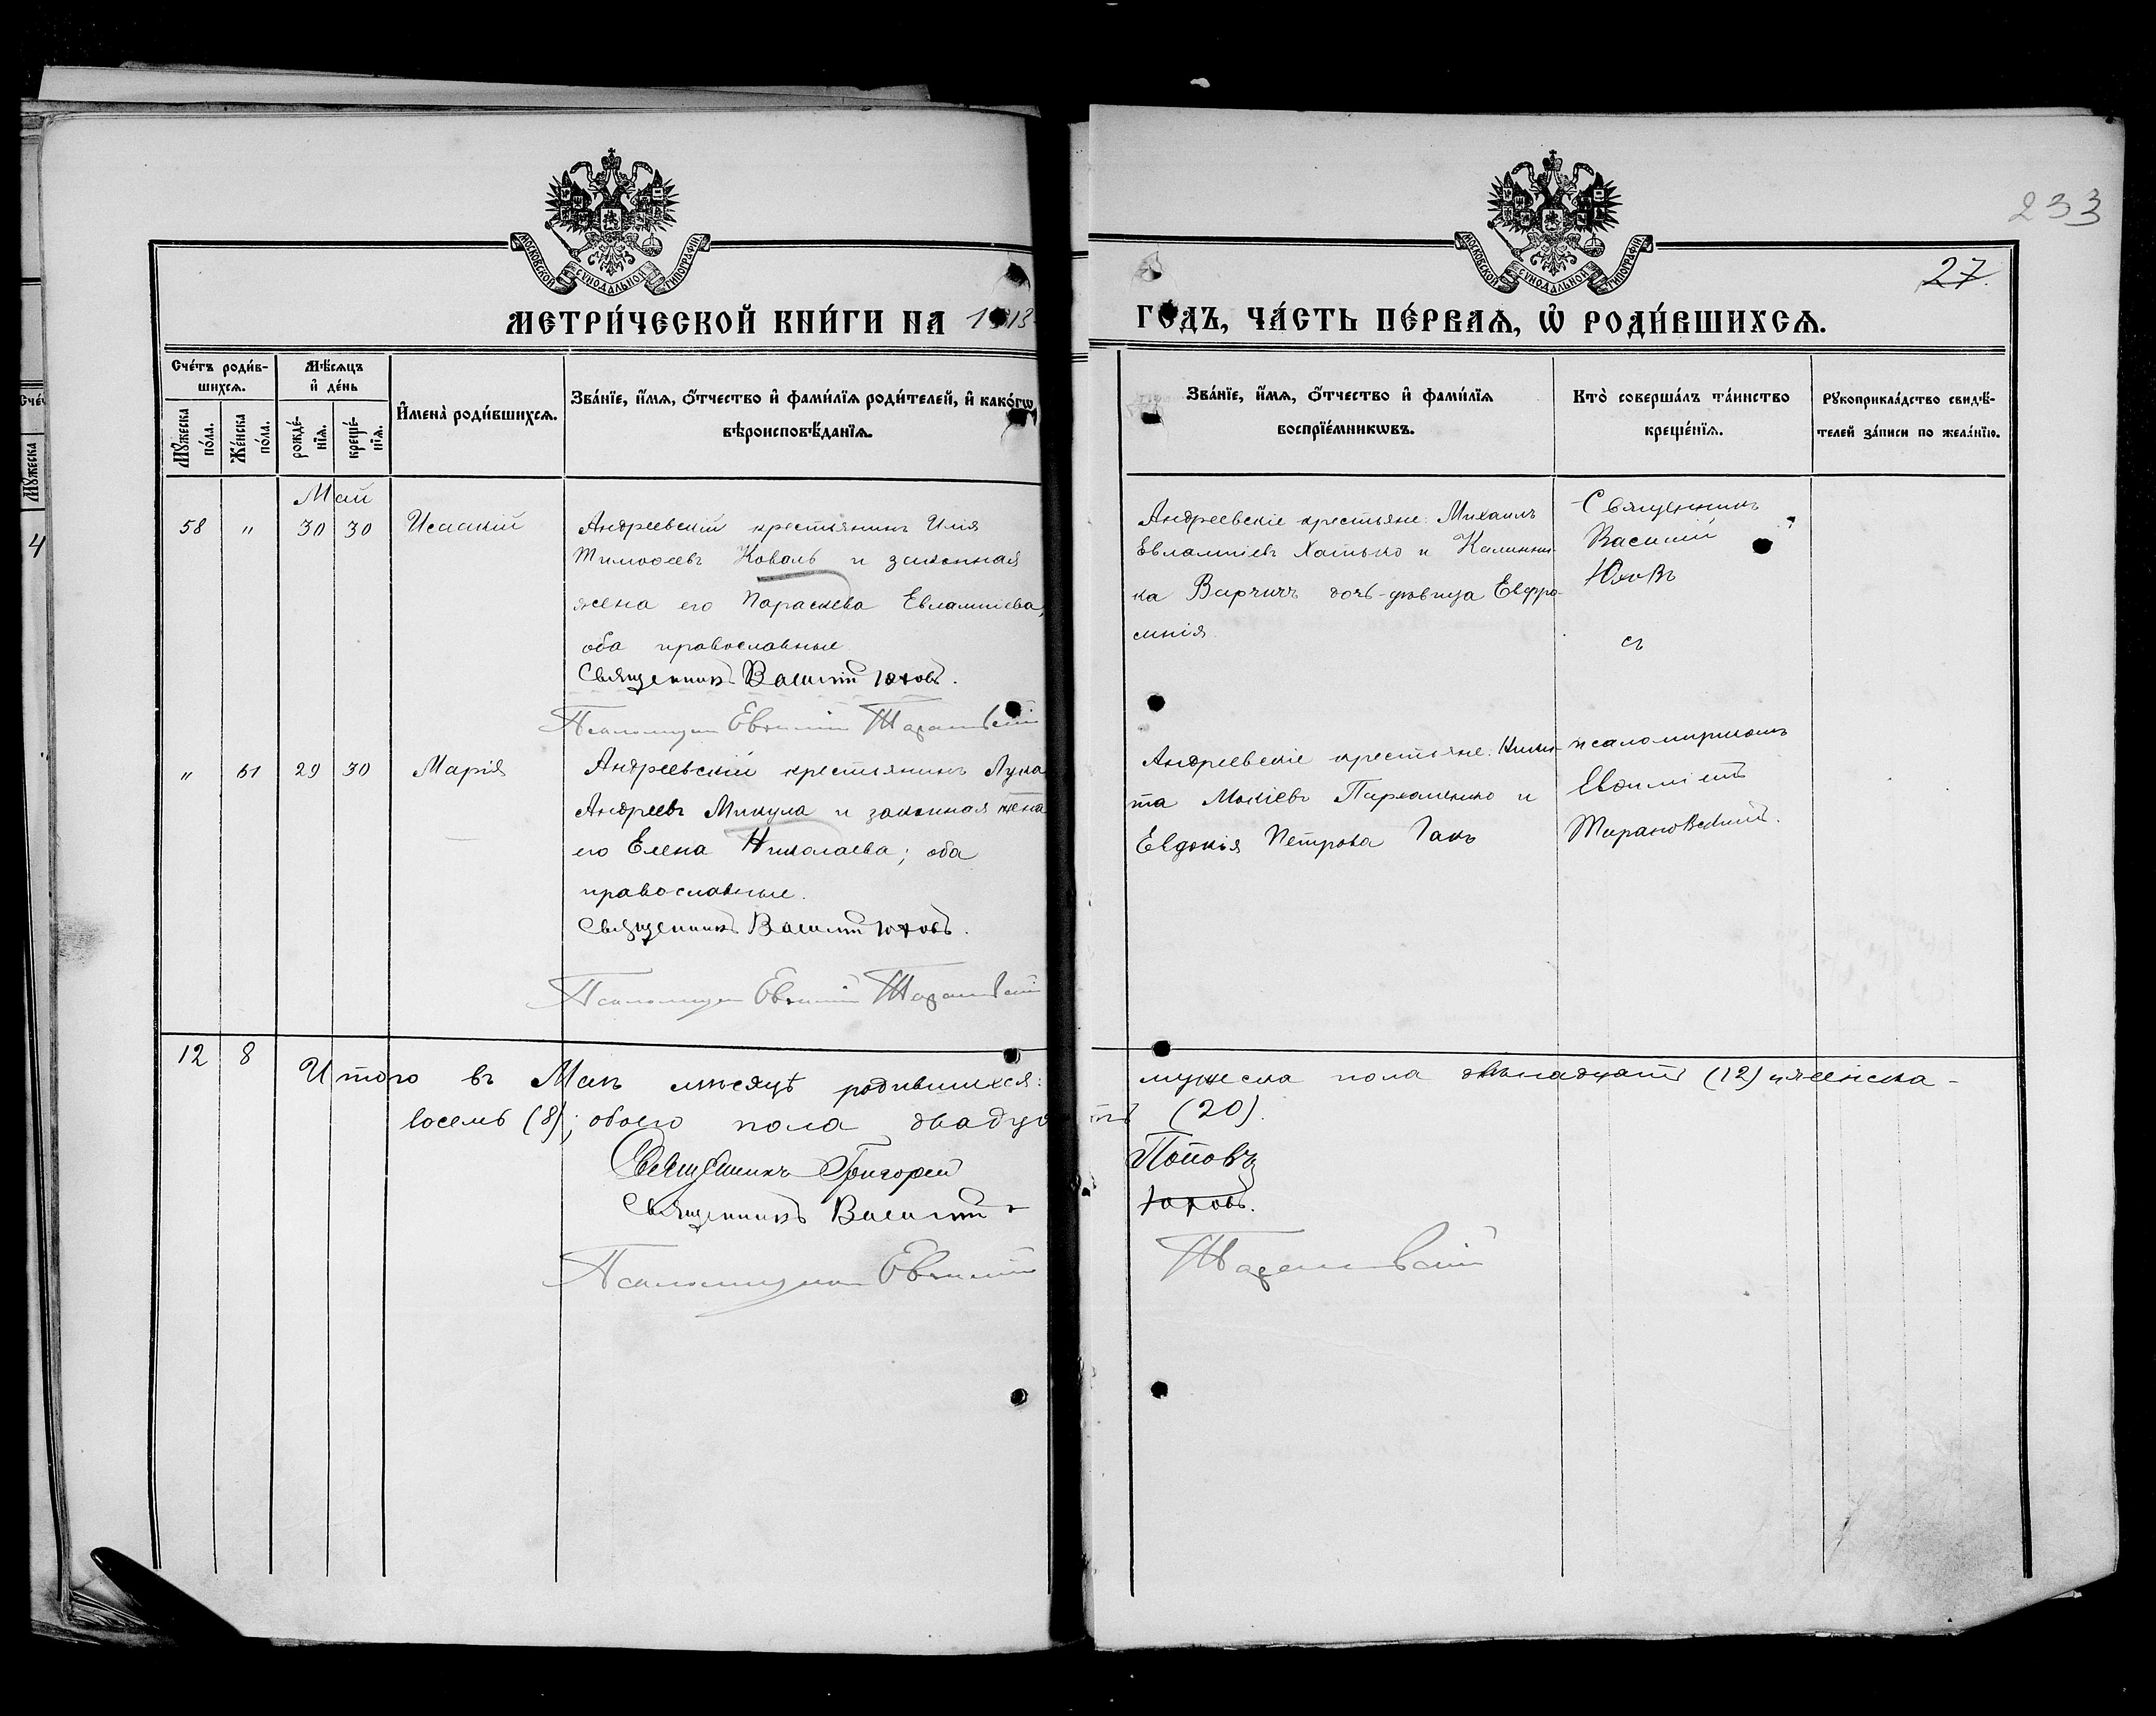 233
27.
МОСКОВСКОЙ СѴНОДАЛЬНОЙ ТИПОГРАФІИ
МОСКОВСКОЙ СѴНОДАЛЬНОЙ ТИПОГРАФІИ
МЕТРИ́ЧЕСКОЙ КНИ́ГИ НА 1913 ГОДЪ, ЧА́СТЬ ПЕ́РВАѦ, Ѡ҆ РОДИ́ВШИХСѦ.
Сче́тъ роди́в-
шихсѧ.
Мѣ́сѧцъ
и҆ де́нь
Мꙋ́жеска по́ла.
Же́нска по́ла.
рожде́-
нїѧ.
креще́-
нїѧ.
И҆мена̀ роди́вшихсѧ.
Зва́нїе, и҆́мѧ, ѻ҆́тчество и҆ фами́лїѧ роди́телей, и҆ како́гѡ
вѣроисповѣ́данїѧ.
Зва́нїе, и҆́мѧ, ѻ҆́тчество и҆ фами́лїѧ
воспрїе́мникѡвъ.
Кто̀ соверша́лъ та́инство
креще́нїѧ.
Рꙋкоприкла́дство свидѣ́-
телей за́писи по жела́нїю.
Май
58 " 30 30 Исаакій
Андреевскій крестьянинъ Илія
Тимоѳеевъ Коваль и законная
жена его Параскева Евлампіева,
оба православные.
Священникъ Василій Юховъ.
Псаломщик Евѳимій Тарановскій
Андреевскіе крестьяне: Михаилъ
Евлампіевъ Хатько и Калинни-
ка Варчичъ дочь-дѣвица Евфро-
синія
Священникъ
Василій
Юховъ
съ
" 51 29 30 Марія
Андреевскій крестьянинъ Лука
Андреевъ Микула и законная жена
его Елена Николаева; оба
православные.
Священникъ Василій Юховъ.
Псаломщик Евѳимій Тарановскій
Андреевскіе крестьяне: Ники-
та Мокіевъ Пархоменко и
Евдокія Петрова Гакъ
псаломщикомъ
Евѳиміемъ
Тарановскимъ.
12 8
Итого въ Маѣ мѣсяцѣ родившихся: мужеска пола двѣнадцать (12) и женска -
восемь (8); обоего пола двадцать (20).
Священникъ Григорій Поповъ
Священникъ Василій Юховъ.
Псаломщик Евѳимій Тарановскій